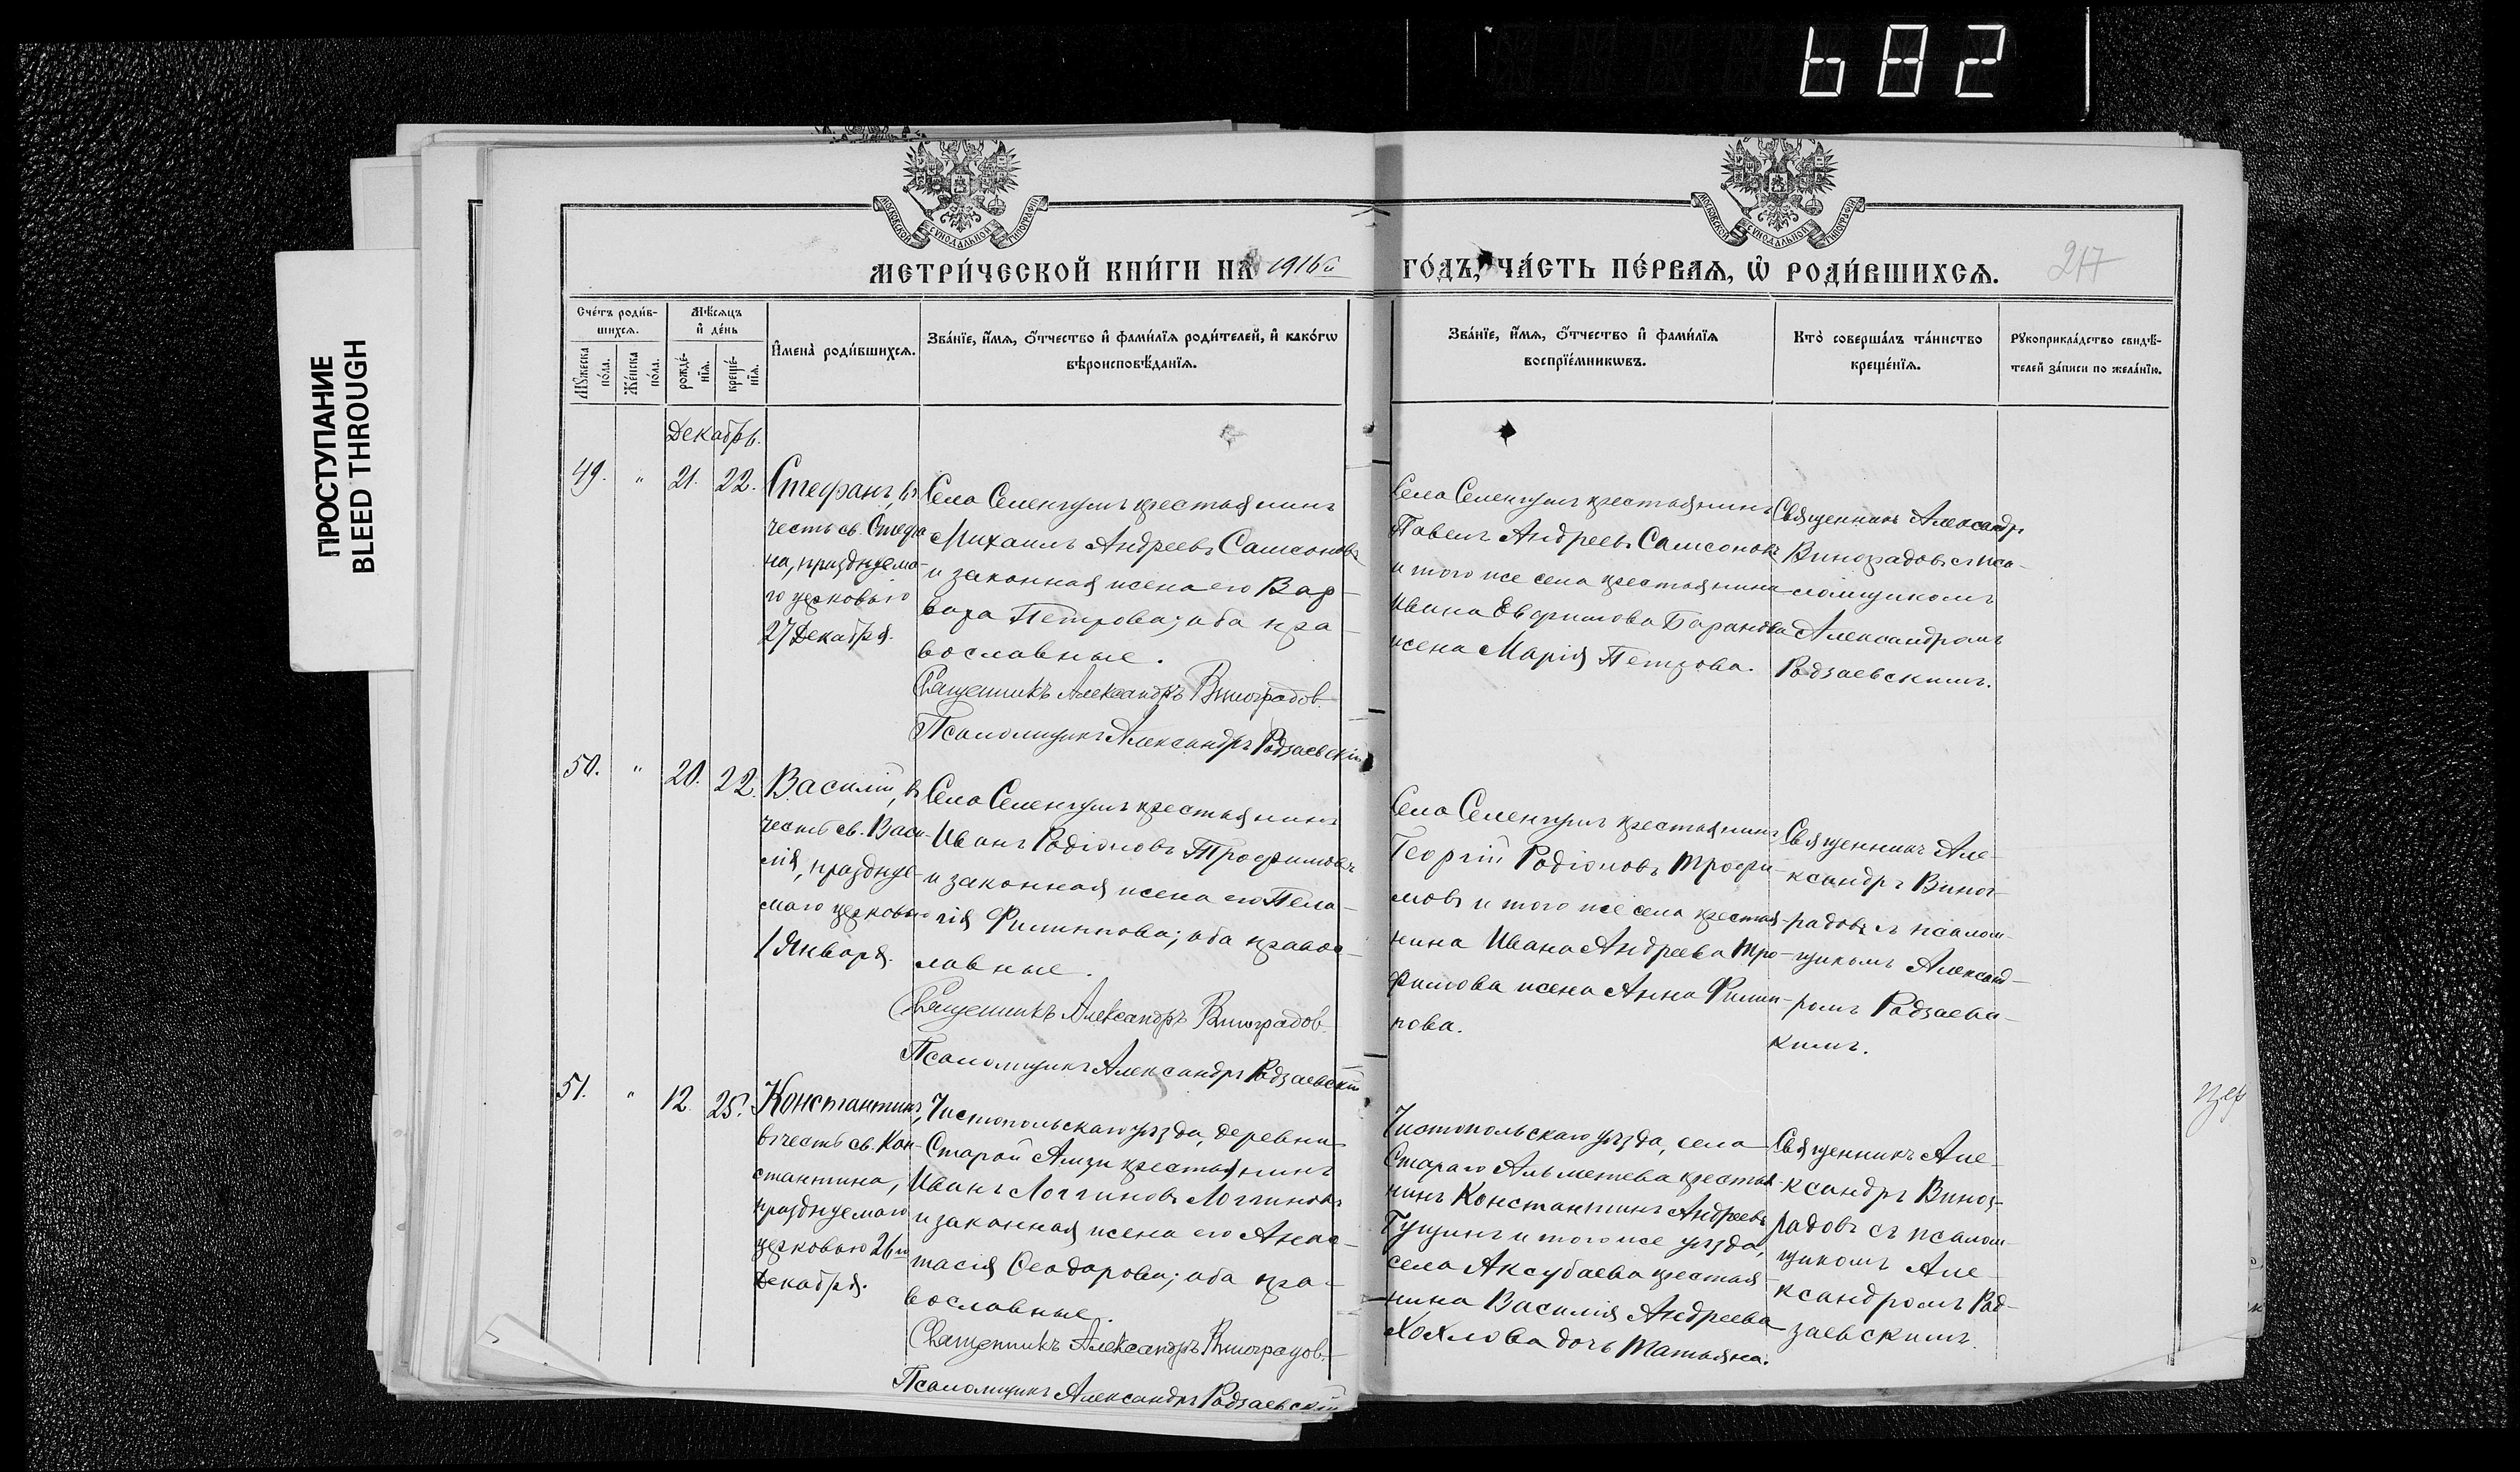 682
ПРОСТУПАНИЕ
BLEED THROUGH
МОСКОВСКОЙ СУНОДАЛЬНОЙ ТИПОГРАФІИ
МОСКОВСКОЙ СУНОДАЛЬНОЙ ТИПОГРАФІИ
МЕТРИ́ЧЕСКОЙ КНИ́ГИ НА 1916й ГО́ДЪ, ЧА́СТЬ ПЕ́РВАѦ, Ѡ РОДИ́ВШИХСѦ.
217
Сче́тъ роди́в-
шихсѧ.
Мꙋ́жеска по́ла.
Же́нска по́ла.
Мѣ́сѧцъ
и҆ де́нь
рожде́-
нїѧ.
креще́-
нїѧ.
И҆мена̀ роди́вшихсѧ.
Зва́нїе, и҆́мѧ, ѻ҆́тчество и҆ фами́лїѧ роди́телей, и҆ како́гѡ
вѣроисповѣ́данїѧ.
Зва́нїе, и҆́мѧ, ѻ҆́тчество и҆ фами́лїѧ
воспрїе́мникѡвъ.
Кто̀ соверша́лъ та́инство
креще́нїѧ.
Рꙋкоприкла́дство свидѣ́-
телей за́писи по жела́нїю.
Декабрь.
49. " 21. 22.
Стефанъ, въ
честь св. Стефа
на, праздуемо-
го церковью
27 Декабря.
Село Селенгушъ крестьянинъ
Михаилъ Андреевъ Самсоновъ
и законная жена его Вар-
вара Петрова; оба пра-
вославные.
Священникъ Александръ Виноградов.
Псаломщикъ Александръ Родзаевскій
Села Селенгушъ крестьянинъ
Павелъ Андреевъ Самсоновъ
и того же села крестьянина
Ивана Евфимова Баранова
жена Марія Петрова.
Священникъ Александръ
Виноградовъ съ пса-
ломщикомъ
Александромъ
Родзаевскимъ.
50. " 20. 22.
Василій, въ
честь св. Васи-
лія, праздуе-
маго церковью
1 Января.
Села Селенгушъ крестьянинъ
Иванъ Родіоновъ Трофимовъ
и законная жена его Пела-
гія Филиппова; оба правос-
лавные.
Священникъ Александръ Виноградов.
Псаломщикъ Александръ Родзаевскій
Села Селенгушъ крестьянинъ
Георгій Родіоновъ Трофи-
мовъ и того же села крестья-
нина Ивана Андреева Тро-
фимова жена Анна Филип-
пова.
Священникъ Але-
ксандръ Виног-
радовъ съ псалом-
щикомъ Александ-
ромъ Родзаевс-
кимъ.
51. " 12. 25.
Константинъ,
въ честь св. Кон-
стантина,
праздуемаго
церковью 26го
Декабря.
Чистопольскаго уѣзда, деревни
Старой Амзи крестьянинъ
Иванъ Логгиновъ Логгиновъ
и законная жена его Анас-
тасія Ѳеодорова; оба пра-
вославные.
Священникъ Александръ Виноградов.
Псаломщикъ Александръ Родзаевскій
Чистопольскаго уѣзда, села
Стараго Альметева крестья-
нинъ Константинъ Андреевъ
Гущинъ и того же уѣзда,
села Аксубаева крестья-
нина Василія Андреева
Хохлова дочь Татьяна.
Священникъ Але-
ксандръ Виног-
радовъ съ псалом-
щикомъ Але-
ксандромъ Род-
заевскимъ.